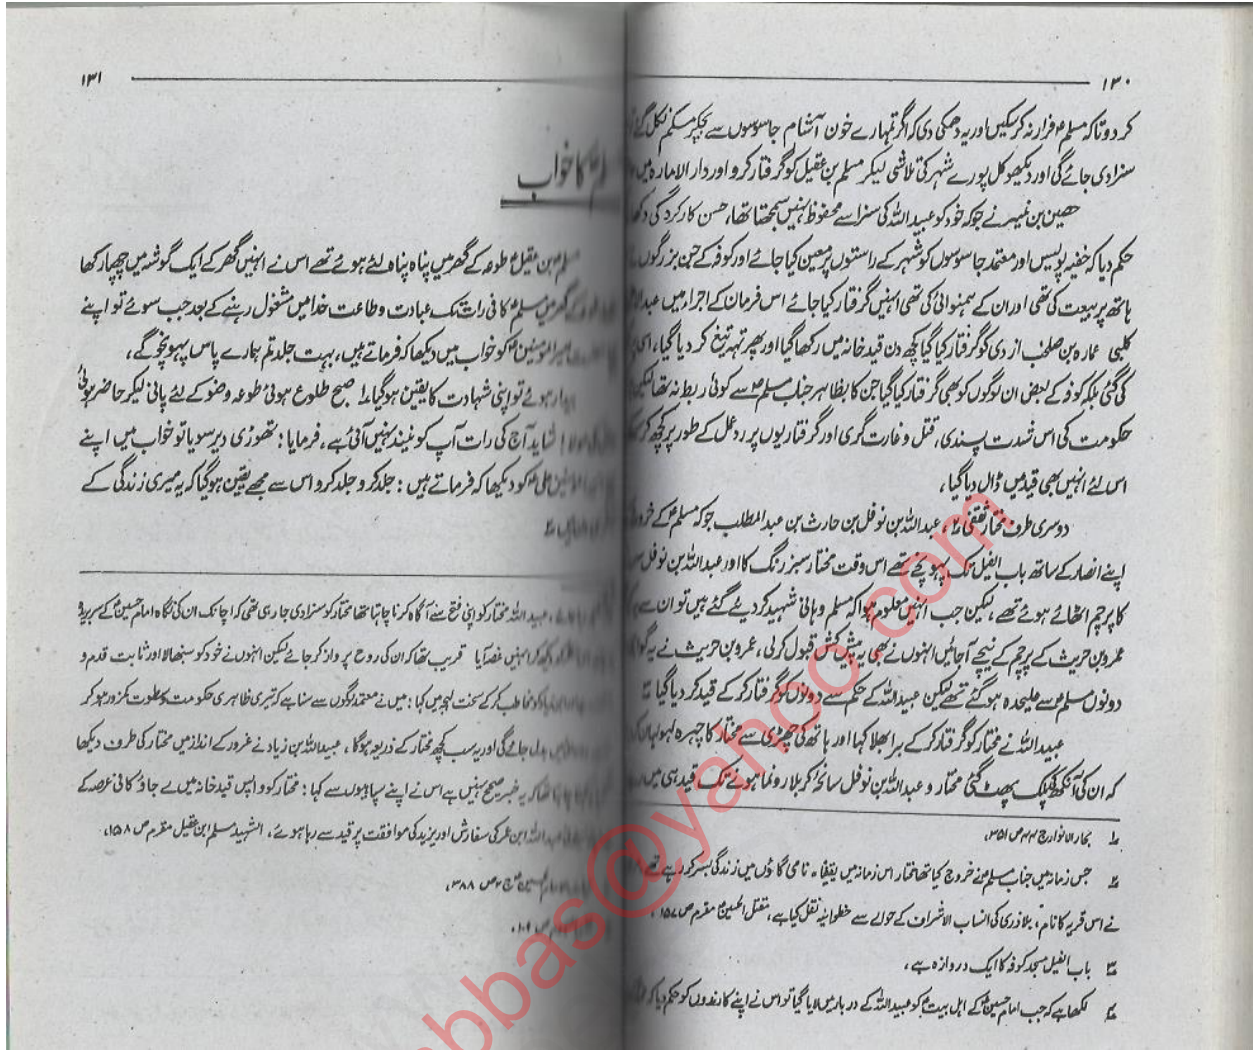 ۱۳۰
کر دو تاکہ مسلمؑ فرار نہ کر سکیں اور یہ دھمکی دی کہ اگر تمہارے خون آشام جاسوسوں سے بچکر مسلم نکل گئے
سزا دی جائے گی اور دیکھو کل پورے شہر کی تلاشی لیکر مسلم بن عقیل کو گرفتار کرو اور دار الامارہ میں
حصین بن نمیر نے جو کہ خود کو عبید اللہ کی سزا سے محفوظ نہیں سمجھتا تھا، حسن کارکردگی
حکم دیا کہ خفیہ پولیس اور معتمد جاسوسوں کو شہر کے راستوں پر معین کیا جائے اور کوفہ کے جن بزرگوں
ہاتھ پر بیعت کی تھی اور ان کے ہمنوائی کی تھی انہیں گرفتار کیا جائے اس فرمان کے اجراء میں
کلبی عمارہ بن صلخب ازدی کو گرفتار کیا گیا کچھ دن قید خانہ میں رکھا گیا اور پھر تہہ تیغ کر دیا گیا،
کی گئی بلکہ کوفہ کے بعض ان لوگوں کو بھی گرفتار کیا گیا جن کا بظاہر جناب مسلمؑ سے کوئی ربط نہ تھا لیکن
حکومت کی اس شدت پسندی، قتل و غارت گری اور گرفتاریوں پر ردعمل کے طور پر کچھ
اس لئے انہیں بھی قید میں ڈال دیا گیا،
دوسری طرف مختار ثقفی ۲؎، عبد اللہ بن نوفل بن حارث بن عبد المطلب جو کہ مسلمؑ کے
اپنے انصار کے ساتھ باب الفیل تک پہونچے تھے اس وقت مختار سبز رنگ کا اور عبد اللہ بن نوفل
کا پرچم اٹھائے ہوئے تھے، لیکن جب انہیں معلوم ہوا کہ مسلم و ہانی شہید کر دیئے گئے ہیں تو ان سے
عمرو بن حریث کے پرچم کے نیچے آجائیں انہوں نے بھی یہ پیش کش قبول کر لی، عمرو بن حریث نے یہ
دونوں مسلمؑ سے علیحدہ ہو گئے تھے لیکن عبید اللہ کے حکم سے دونوں کو گرفتار کر کے قید کر دیا گیا
عبید اللہ نے مختار کو گرفتار کر کے برا بھلا کہا اور ہاتھ کی چھڑی سے مختار کا چہرہ لہولہان
کہ ان کی آنکھ کی پلک پھٹ گئی مختار و عبد اللہ بن نوفل سانحۂ کربلا رونما ہونے تک قید ہی میں
۱؎ بحار الانوار ج ۴۴ ص ۳۵۱،
۲؎ جس زمانہ میں جناب مسلمؑ نے خروج کیا تھا مختار اس زمانہ میں نامی گاؤں میں زندگی بسر کر رہے تھے
نے اس قریہ کا نام، بلاذری کی انساب الاشراف کے حوالے سے نقل کیا ہے، مقتل الحسینؑ مقرم ص ۱۵۷،
۳؎ باب الفیل مسجد کوفہ کا ایک دروازہ ہے،
۴؎ لکھا ہے کہ جب امام حسینؑ کے اہل بیتؑ کو عبید اللہ کے دربار میں لایا گیا تو اس نے اپنے کارندوں کو حکم دیا کہ
۱۳۱
کا خواب
مسلمؑ بن عقیلؑ طوعہ کے گھر میں پناہ لئے ہوئے تھے اس نے انہیں گھر کے ایک گوشہ میں چھپا رکھا
کے گھر میں مسلمؑ کافی رات تک عبادت و طاعت خدا میں مشغول رہنے کے بعد جب سوئے تو اپنے
امیر المومنینؑ کو خواب میں دیکھا کہ فرماتے ہیں، بہت جلد تم ہمارے پاس پہونچو گے،
بیدار ہوئے تو اپنی شہادت کا یقین ہو گیا، صبح طلوع ہوئی طوعہ وضو کے لئے پانی لیکر حاضر ہوئی
مولا! شاید آج کی رات آپ کو نیند نہیں آئی ہے، فرمایا: تھوڑی دیر سویا تو خواب میں اپنے
علیؑ کو دیکھا کہ فرماتے ہیں: جلد کرو جلد کرو اس سے مجھے یقین ہو گیا کہ یہ میری زندگی کے
عبید اللہ مختار کو اپنی فتح سے آگاہ کرنا چاہتا تھا مختار کو سزا دی جا رہی تھی کہ اچانک ان کی نگاہ امام حسینؑ کے سر پر پڑی
دیکھ کر انہیں غصہ آیا قریب تھا کہ ان کی روح پرواز کر جائے لیکن انہوں نے خود کو سنبھالا اور ثابت قدم و
کو مخاطب کر کے سخت لہجہ میں کہا: میں نے معتمد لوگوں سے سنا ہے کہ تیری ظاہری حکومت و سطوت کمزور ہو کر
بدل جائے گی اور یہ سب کچھ مختار کے ذریعہ ہوگا، عبید اللہ بن زیاد نے غرور کے انداز میں مختار کی طرف دیکھا
کہ یہ خبر صحیح نہیں ہے اس نے اپنے سپاہیوں سے کہا: مختار کو واپس قید خانہ میں لے جاؤ کافی عرصہ کے
عبد اللہ ابن عمر کی سفارش اور یزید کی موافقت پر قید سے رہا ہوئے، الشہید مسلم ابن عقیل مقرم ص ۱۵۸،
الحسینؑ ج ۲ ص ۳۸۸،
ص ۱۰۹،
abbas@yahoo.com